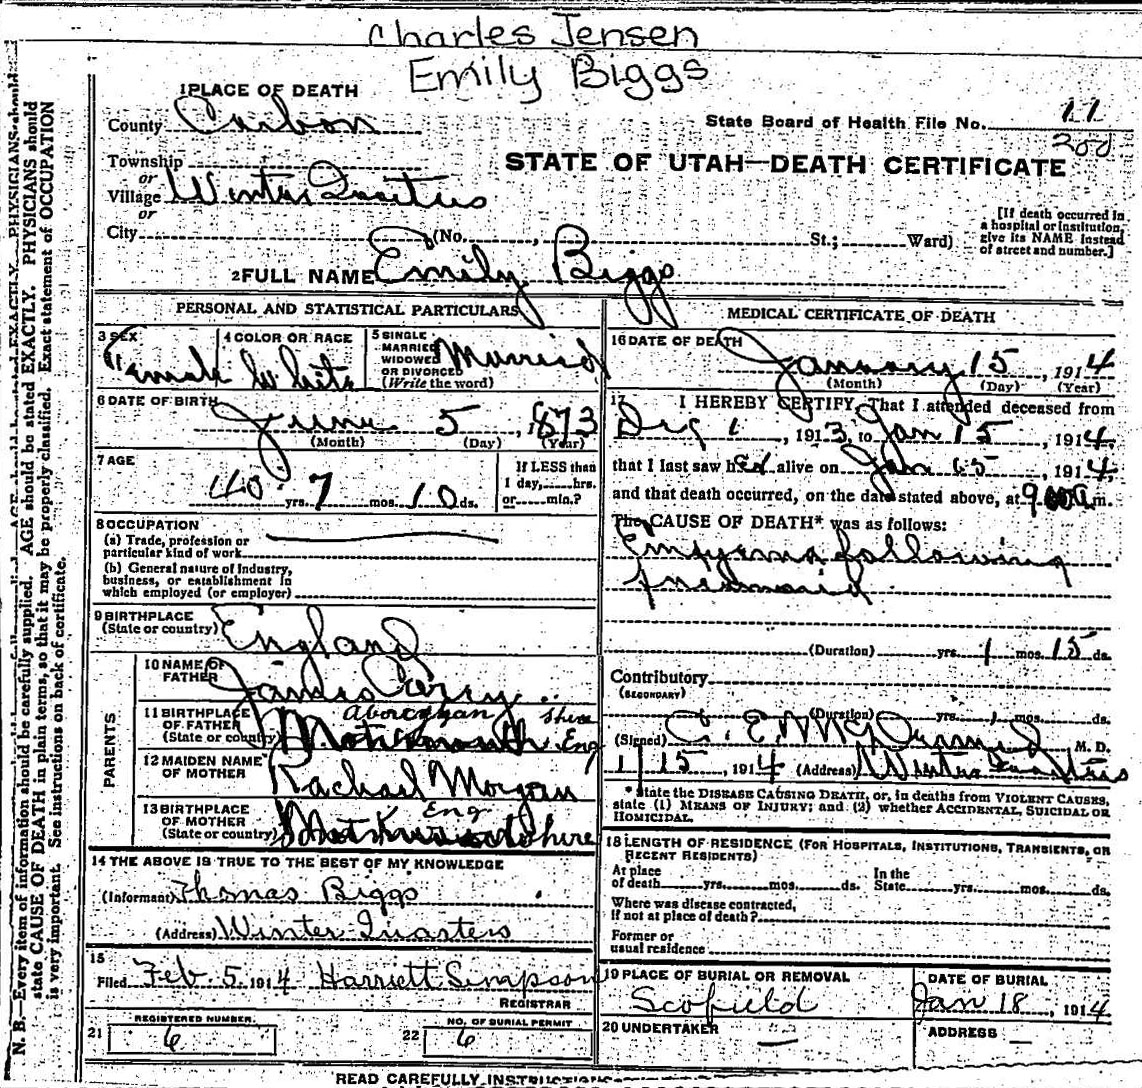 Charles Jensen
Emily Biggs
1 PLACE OF DEATH
County Carbon
State Board of Health File No. 11
200
Township
or
Village Winter Quarters
or
City (No. , St.; Ward)
STATE OF UTAH—DEATH CERTIFICATE
[If death occurred in
a hospital or institution,
give its NAME instead
of street and number.]
2 FULL NAME Emily Biggs
PERSONAL AND STATISTICAL PARTICULARS
3 SEX Female
4 COLOR OR RACE White
5 SINGLE
MARRIED
WIDOWED
OR DIVORCED
(Write the word) Married
6 DATE OF BIRTH June 5, 1873
(Month) (Day) (Year)
7 AGE 40 yrs. 7 mos. 10 ds.
If LESS than
1 day, hrs.
or min.?
8 OCCUPATION
(a) Trade, profession or
particular kind of work
(b) General nature of Industry,
business, or establishment in
which employed (or employer)
9 BIRTHPLACE
(State or country) England
PARENTS
10 NAME OF
FATHER James
11 BIRTHPLACE
OF FATHER
(State or country) shire Eng
12 MAIDEN NAME
OF MOTHER Rachael Morgan
13 BIRTHPLACE
OF MOTHER
(State or country) Eng shire
14 THE ABOVE IS TRUE TO THE BEST OF MY KNOWLEDGE
(Informant) Thomas Biggs
(Address) Winter Quarters
15
Filed Feb 5, 1914 Harriett Simpson
REGISTRAR
21 REGISTERED NUMBER. 6
22 NO. OF BURIAL PERMIT 6
MEDICAL CERTIFICATE OF DEATH
16 DATE OF DEATH January 15, 1914
(Month) (Day) (Year)
17 I HEREBY CERTIFY, That I attended deceased from
1, 1913, to Jan 15, 1914,
that I last saw her alive on Jan 15, 1914,
and that death occurred, on the date stated above, at 9 m.
The CAUSE OF DEATH* was as follows:
Empyema following
(Duration) yrs. 1 mos. 15 ds.
Contributory
(SECONDARY)
(Duration) yrs. mos. ds.
(Signed) M. D.
1/15, 1914 (Address) Winter Quarters
* State the DISEASE CAUSING DEATH, or, in deaths from VIOLENT CAUSES,
state (1) MEANS OF INJURY; and (2) whether ACCIDENTAL, SUICIDAL OR
HOMICIDAL.
18 LENGTH OF RESIDENCE (FOR HOSPITALS, INSTITUTIONS, TRANSIENTS, OR
RECENT RESIDENTS)
At place
of death yrs. mos. ds.
In the
State yrs. mos. ds.
Where was disease contracted,
if not at place of death?
Former or
usual residence
19 PLACE OF BURIAL OR REMOVAL
Scofield
DATE OF BURIAL
Jan 18, 1914
20 UNDERTAKER
ADDRESS
READ CAREFULLY
N. B.—Every item of information should be carefully supplied. AGE should be stated EXACTLY. PHYSICIANS should
state CAUSE OF DEATH in plain terms, so that it may be properly classified. Exact statement of OCCUPATION
is very important. See instructions on back of certificate.